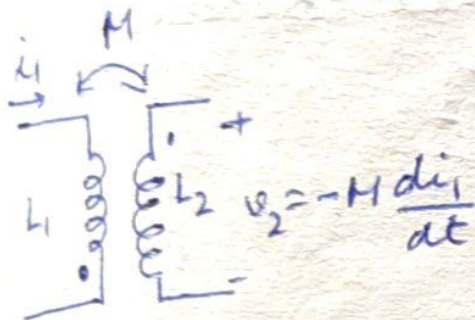 M
i₁
+
L₁
L₂
v₂ = -M di₁/dt
-